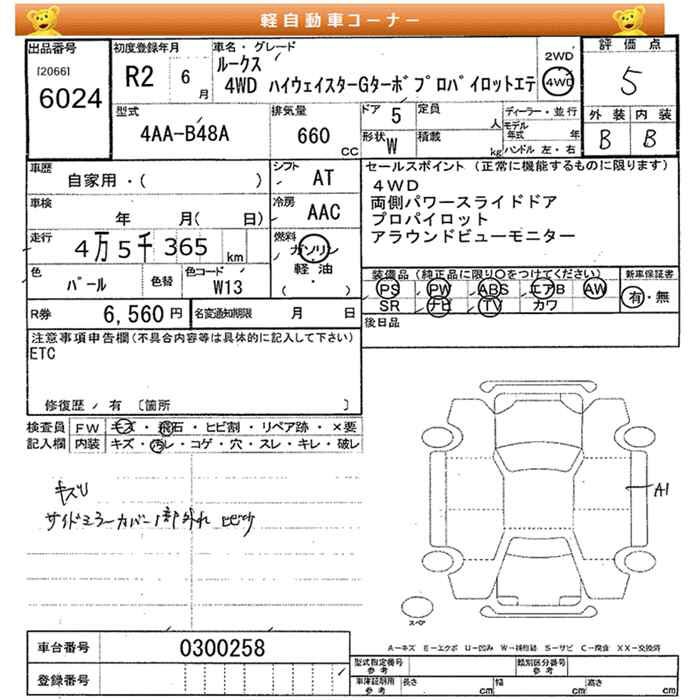 軽自動車コーナー
出品番号
[2066]
6024
初度登録年月
R2 6月
車名・グレード
ルークス
4WD ハイウェイスターGターボ プロパイロットエデ
2WD
4WD
評価点
5
外装 内装
B B
型式
4AA-B48A
排気量
660 CC
ドア 5
形状 W
定員 人
積載 kg
ディーラー・並行
モデル年式 年
ハンドル 左・右
車歴
自家用・( )
シフト AT
車検
年 月( 日)
冷房 AAC
走行
4万5千365 km
燃料
ガソリン
軽油
( ・ )
色
パール
色替
色コード
W13
セールスポイント (正常に機能するものに限ります)
4WD
両側パワースライドドア
プロパイロット
アラウンドビューモニター
装備品 (純正品に限り○をつけてください)
PS PW ABS エアB AW
SR ナビ TV カワ
新車保証書
有・無
後日品
R券 6,560 円
名変通知期限 月 日
注意事項申告欄 (不具合内容等は具体的に記入して下さい)
ETC
修復歴 / 有 〔箇所 〕
検査員 FW キズ・飛石・ヒビ割・リペア跡・×要
記入欄 内装 キズ・汚レ・コゲ・穴・スレ・キレ・破レ
キズU
サイドミラーカバー1部外れ ヒビ
A1
スペア
車台番号 0300258
登録番号
A－キズ E－エクボ U－凹み W－補修跡 S－サビ C－腐食 XX－交換済
型式指定番号 参考
類別区分番号 参考
車庫証明用 参考 長さ cm 幅 cm 高さ cm